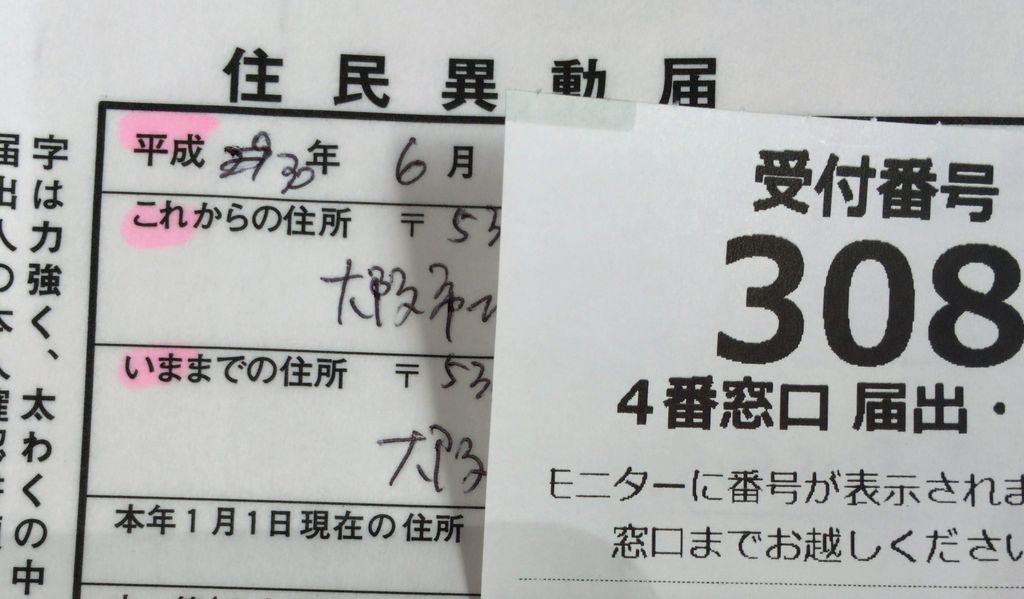 住民異動届
平成 30年 6月
これからの住所 〒53
大阪市
いままでの住所 〒53
大阪
本年1月1日現在の住所
字は力強く、太わくの中
受付番号
308
4番窓口 届出・
モニターに番号が表示されま
窓口までお越しください